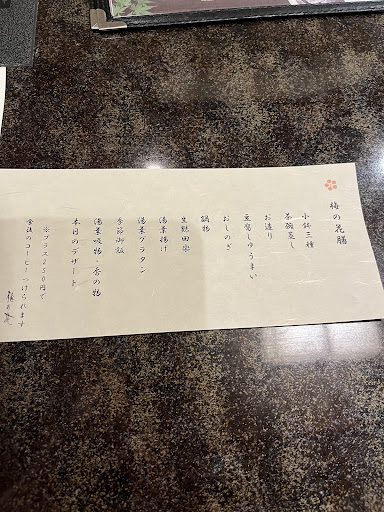 梅の花膳
小鉢三種
茶碗蒸し
お造り
豆腐しゅうまい
おしのぎ
鍋物
生麩田楽
湯葉揚げ
湯葉グラタン
季節御飯
湯葉吸物・香の物
本日のデザート
※プラス250円で
食後のコーヒーつけられます